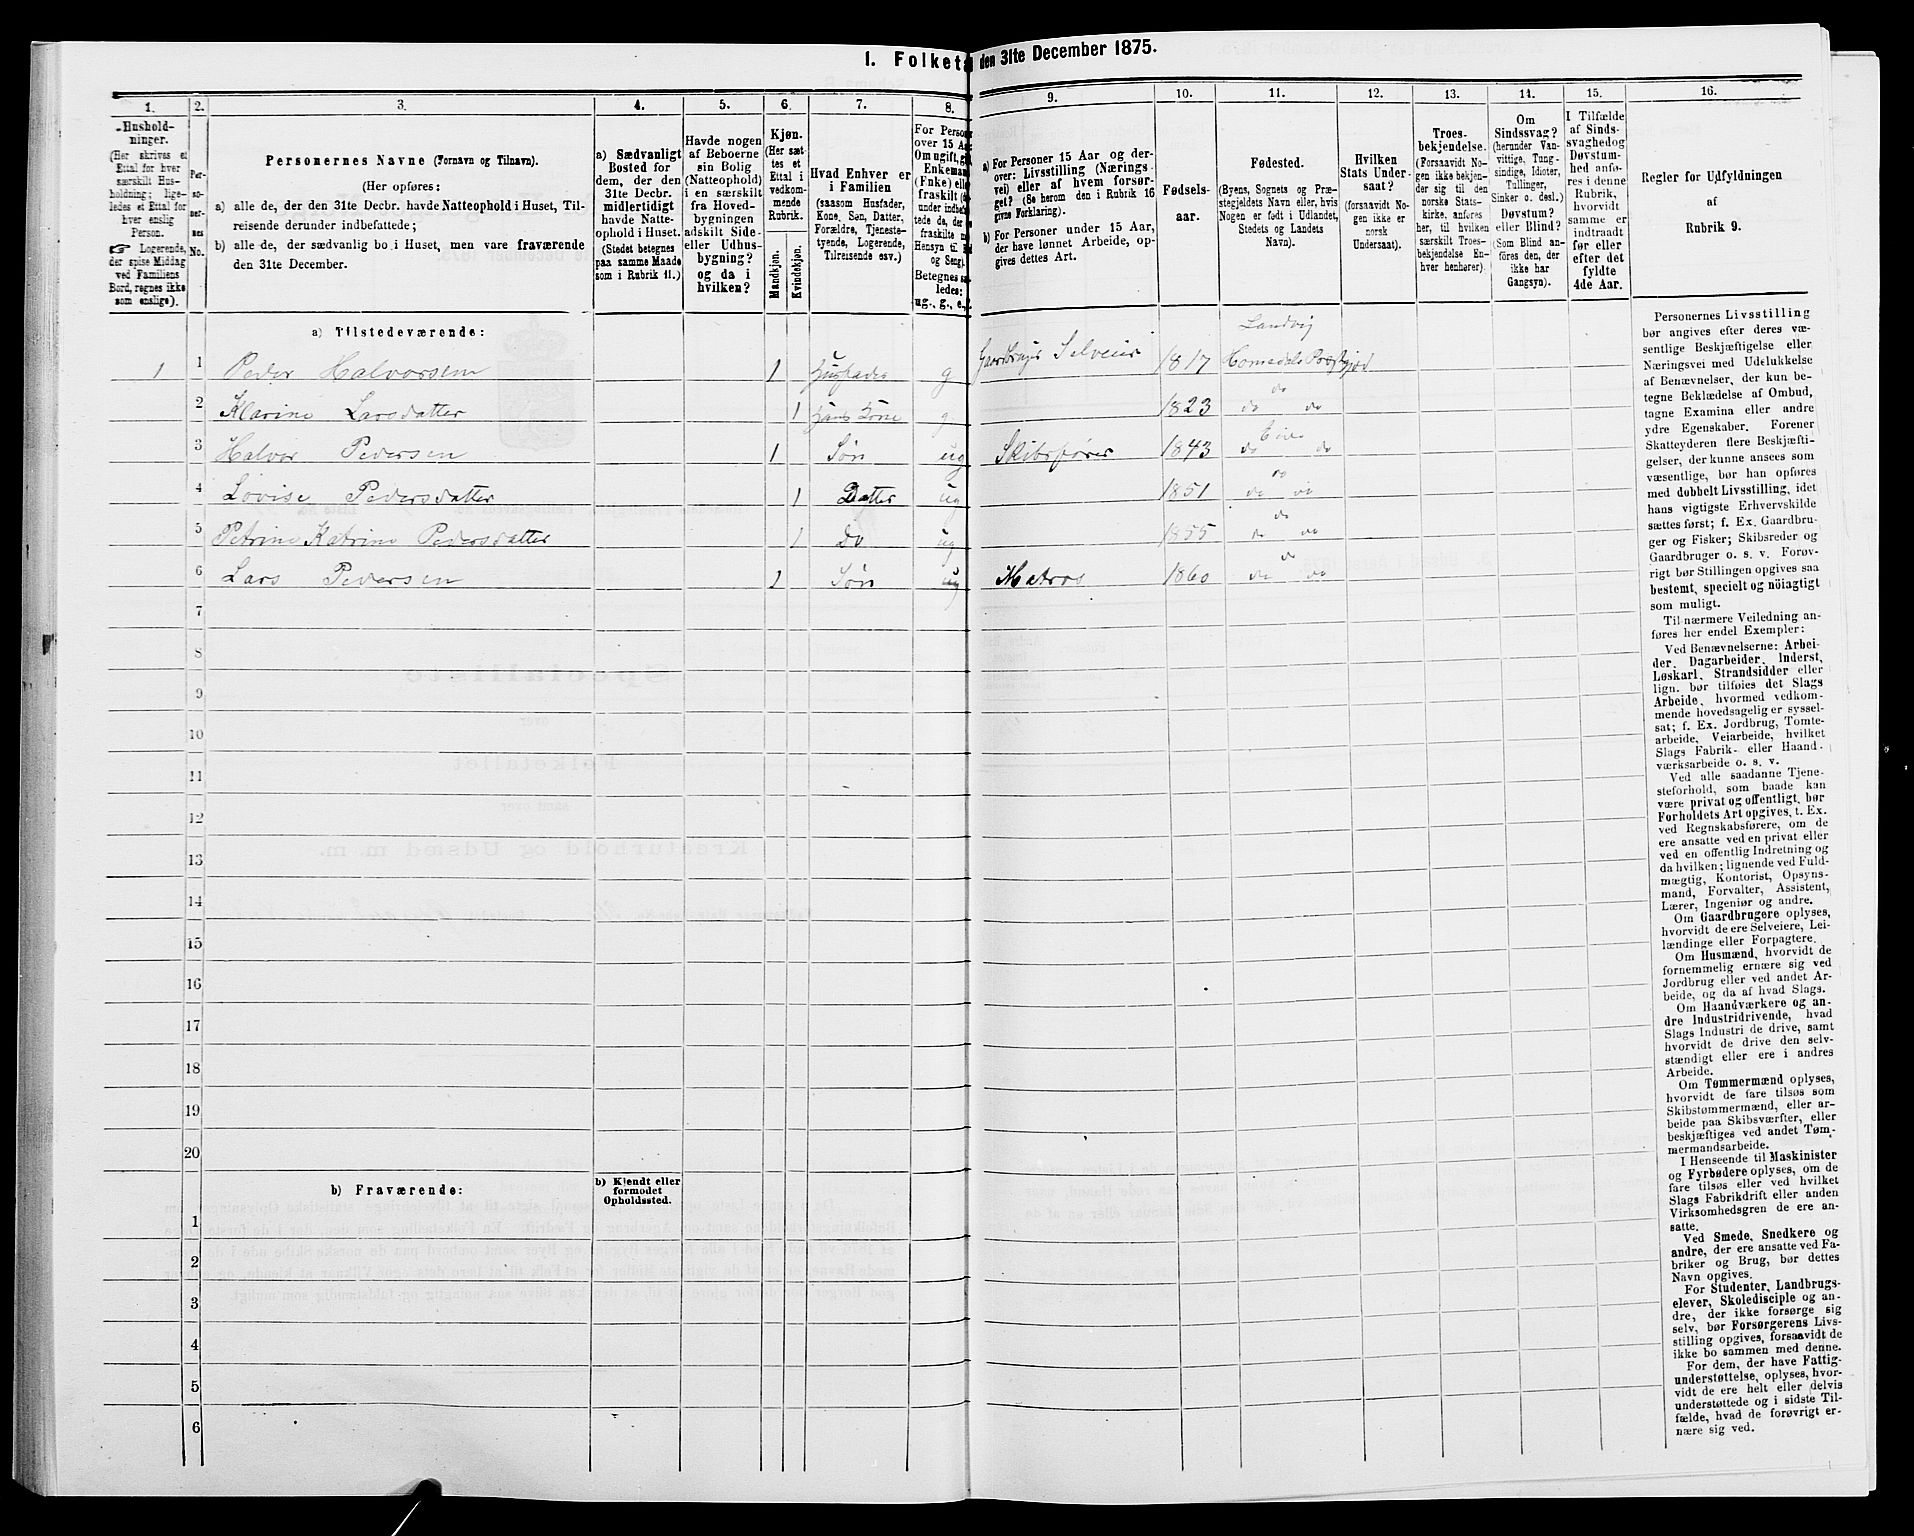 1. Folketal den 31te December 1875.
1. 2. 3. 4. 5. 6. 7. 8. 9. 10. 11. 12. 13. 14. 15. 16.
Hushold-
ninger.
(Her skrives et
Ettal for hver
særskilt Hus-
holdning; lige-
ledes et Ettal for
hver enslig
Person.
Logerende,
der spise Middag
ved Familiens
Bord, regnes ikke
som enslige).
Per-
so-
ner-
nes
No.
Personernes Navne (Fornavn og Tilnavn).
(Her opføres:
a) alle de, der den 31te Decbr. havde Natteophold i Huset, Til-
reisende derunder indbefattede;
b) alle de, der sædvanlig bo i Huset, men vare fraværende
den 31te December.
a) Sædvanligt
Bosted for
dem, der den
31te Decbr.
midlertidigt
havde Natte-
ophold i Huset.
(Stedet betegnes
paa samme Maade
som i Rubrik 11.)
Havde nogen
af Beboerne
sin Bolig
(Natteophold)
i en særskilt
fra Hoved-
bygningen
adskilt Side-
eller Udhus-
bygning?
og da i
hvilken?
Kjøn.
(Her sæt-
tes et
Ettal i
vedkom-
mende
Rubrik.
Mandkjøn.
Kvindekjøn.
Hvad Enhver er
i Familien
(saasom Husfader,
Kone, Søn, Datter,
Forældre, Tjeneste-
tyende, Logerende,
Tilreisende osv.)
For Person
over 15 Aa
Om ugift, gi
Enkeman
(Fnke) ell
fraskilt
under indbef
tede da, de
fraskilte m
Hensyn til
og Seng).
Betegnes sa
ledes:
ug., g., e.,
a) For Personer 15 Aar og der-
over: Livsstilling (Nærings-
vei) eller af hvem forsør-
get? (Se herom den i Rubrik 16
givne Forklaring).
b) For Personer under 15 Aar,
der have lønnet Arbeide, op-
gives dettes Art.
Fødsels-
aar.
Fødested.
(Byens, Sognets og Præ-
stegjeldets Navn eller, hvis
Nogen er født i Udlandet,
Stedets og Landets
Navn).
Hvilken
Stats Under-
saat?
(forsaavidt No-
gen ikke er
norsk
Undersaat).
Troes-
bekjendelse.
(Forsaavidt No-
gen ikke bekjen-
der sig til den
norske Stats-
kirke, anføres
her, til hvilken
særskilt Troes-
bekjendelse En-
hver henhører).
Om
Sindssvag?
(herunder Van-
vittige, Tung-
sindige, Idioter,
Tullinger,
Sinker o. desl.)
Døvstum?
eller Blind?
(Som Blind an-
føres den, der
ikke har
Gangsyn).
I Tilfælde
af Sinds-
svaghed og
Døvstum-
hed anfø-
res i denne
Rubrik,
hvorvidt
samme er
indtraadt
før eller
efter det
fyldte
4de Aar.
Regler for Udfyldningen
af
Rubrik 9.
a) Tilstedeværende:
1 1 Peder Halvorsen 1 Husfader g Gaardbruger Selveier 1817 Landvig Homedals Præstgjed
2 Karine Larsdatter 1 hans Kone g 1823 do do do
3 Halvor Pedersen 1 Søn ug Skibsfører 1843 do do
4 Lovise Pedersdatter 1 Datter ug 1851 do do do
5 Petrine Katrine Pedersdatter 1 Do ug 1855 do do do
6 Lars Pedersen 1 Søn ug Matros 1860 do do do
7
8
9
10
11
12
13
14
15
16
17
18
19
20
b) Fraværende:
b) Kjendt eller
formodet
Opholdssted.
1
2
3
4
5
6
Personernes Livsstilling
bør angives efter deres væ-
sentlige Beskjæftigelse eller
Næringsvei med Udelukkelse
af Benævnelser, der kun be-
tegne Beklædelse af Ombud,
tagne Examina eller andre
ydre Egenskaber. Forener
Skatteyderen flere Beskjæfti-
gelser, der kunne ansees som
væsentlige, bør han opføres
med dobbelt Livsstilling, idet
hans vigtigste Erhvervskilde
sættes først; f. Ex. Gaardbru-
ger og Fisker; Skibsreder og
Gaardbruger o. s. v. Forøv-
rigt bør Stillingen opgives saa
bestemt, specielt og nöiagtigt
som muligt.
Til nærmere Veiledning an-
føres her endel Exempler:
Ved Benævnelserne: Arbei-
der, Dagarbeider, Inderst,
Løskarl, Strandsidder eller
lign. bør tilføies det Slags
Arbeide, hvormed vedkom-
mende hovedsagelig er syssel-
sat; f. Ex. Jordbrug, Tomte-
arbeide, Veiarbeide, hvilket
Slags Fabrik- eller Haand-
værksarbeide o. s. v.
Ved alle saadanne Tjene-
steforhold, som baade kan
være privat og offentligt, bør
Forholdets Art opgives, t. Ex.
ved Regnskabsførere, om de
ere ansatte ved en privat eller
ved en offentlig Indretning og
da hvilken; lignende ved Fuld-
mægtig, Kontorist, Opsyns-
mand, Forvalter, Assistent,
Lærer, Ingeniør og andre.
Om Gaardbrugere oplyses,
hvorvidt de ere Selveiere, Lei-
lændinge eller Forpagtere.
Om Husmænd, hvorvidt de
fornemmelig ernære sig ved
Jordbrug eller ved andet Ar-
beide, og da af hvad Slags.
Om Haandværkere og an-
dre Industridrivende, hvad
Slags Industri de drive, samt
hvorvidt de drive den selv-
stændigt eller ere i andres
Arbeide.
Om Tømmermænd oplyses,
hvorvidt de fare tilsøs som
Skibstømmermænd, eller ar-
beide paa Skibsværfter, eller
beskjæftiges ved andet Tøm-
mermandsarbeide.
I Henseende til Maskinister
og Fyrbødere oplyses, om de
fare tilsøs eller ved hvilket
Slags Fabrikdrift eller anden
Virksomhedsgren de ere an-
satte.
Ved Smede, Snedkere og
andre, der ere ansatte ved Fa-
briker og Brug, bør dettes
Navn opgives.
For Studenter, Landbrugs-
elever, Skoledisciple og an-
dre, der ikke forsørge sig
selv, bør Forsørgerens Livs-
stilling opgives, forsaavidt de
ikke bo sammen med denne.
For dem, der have Fattig-
understøttelse, oplyses, hvor-
vidt de ere helt eller delvis
understøttede og i sidste Til-
fælde, hvad de forøvrigt er-
nære sig ved.